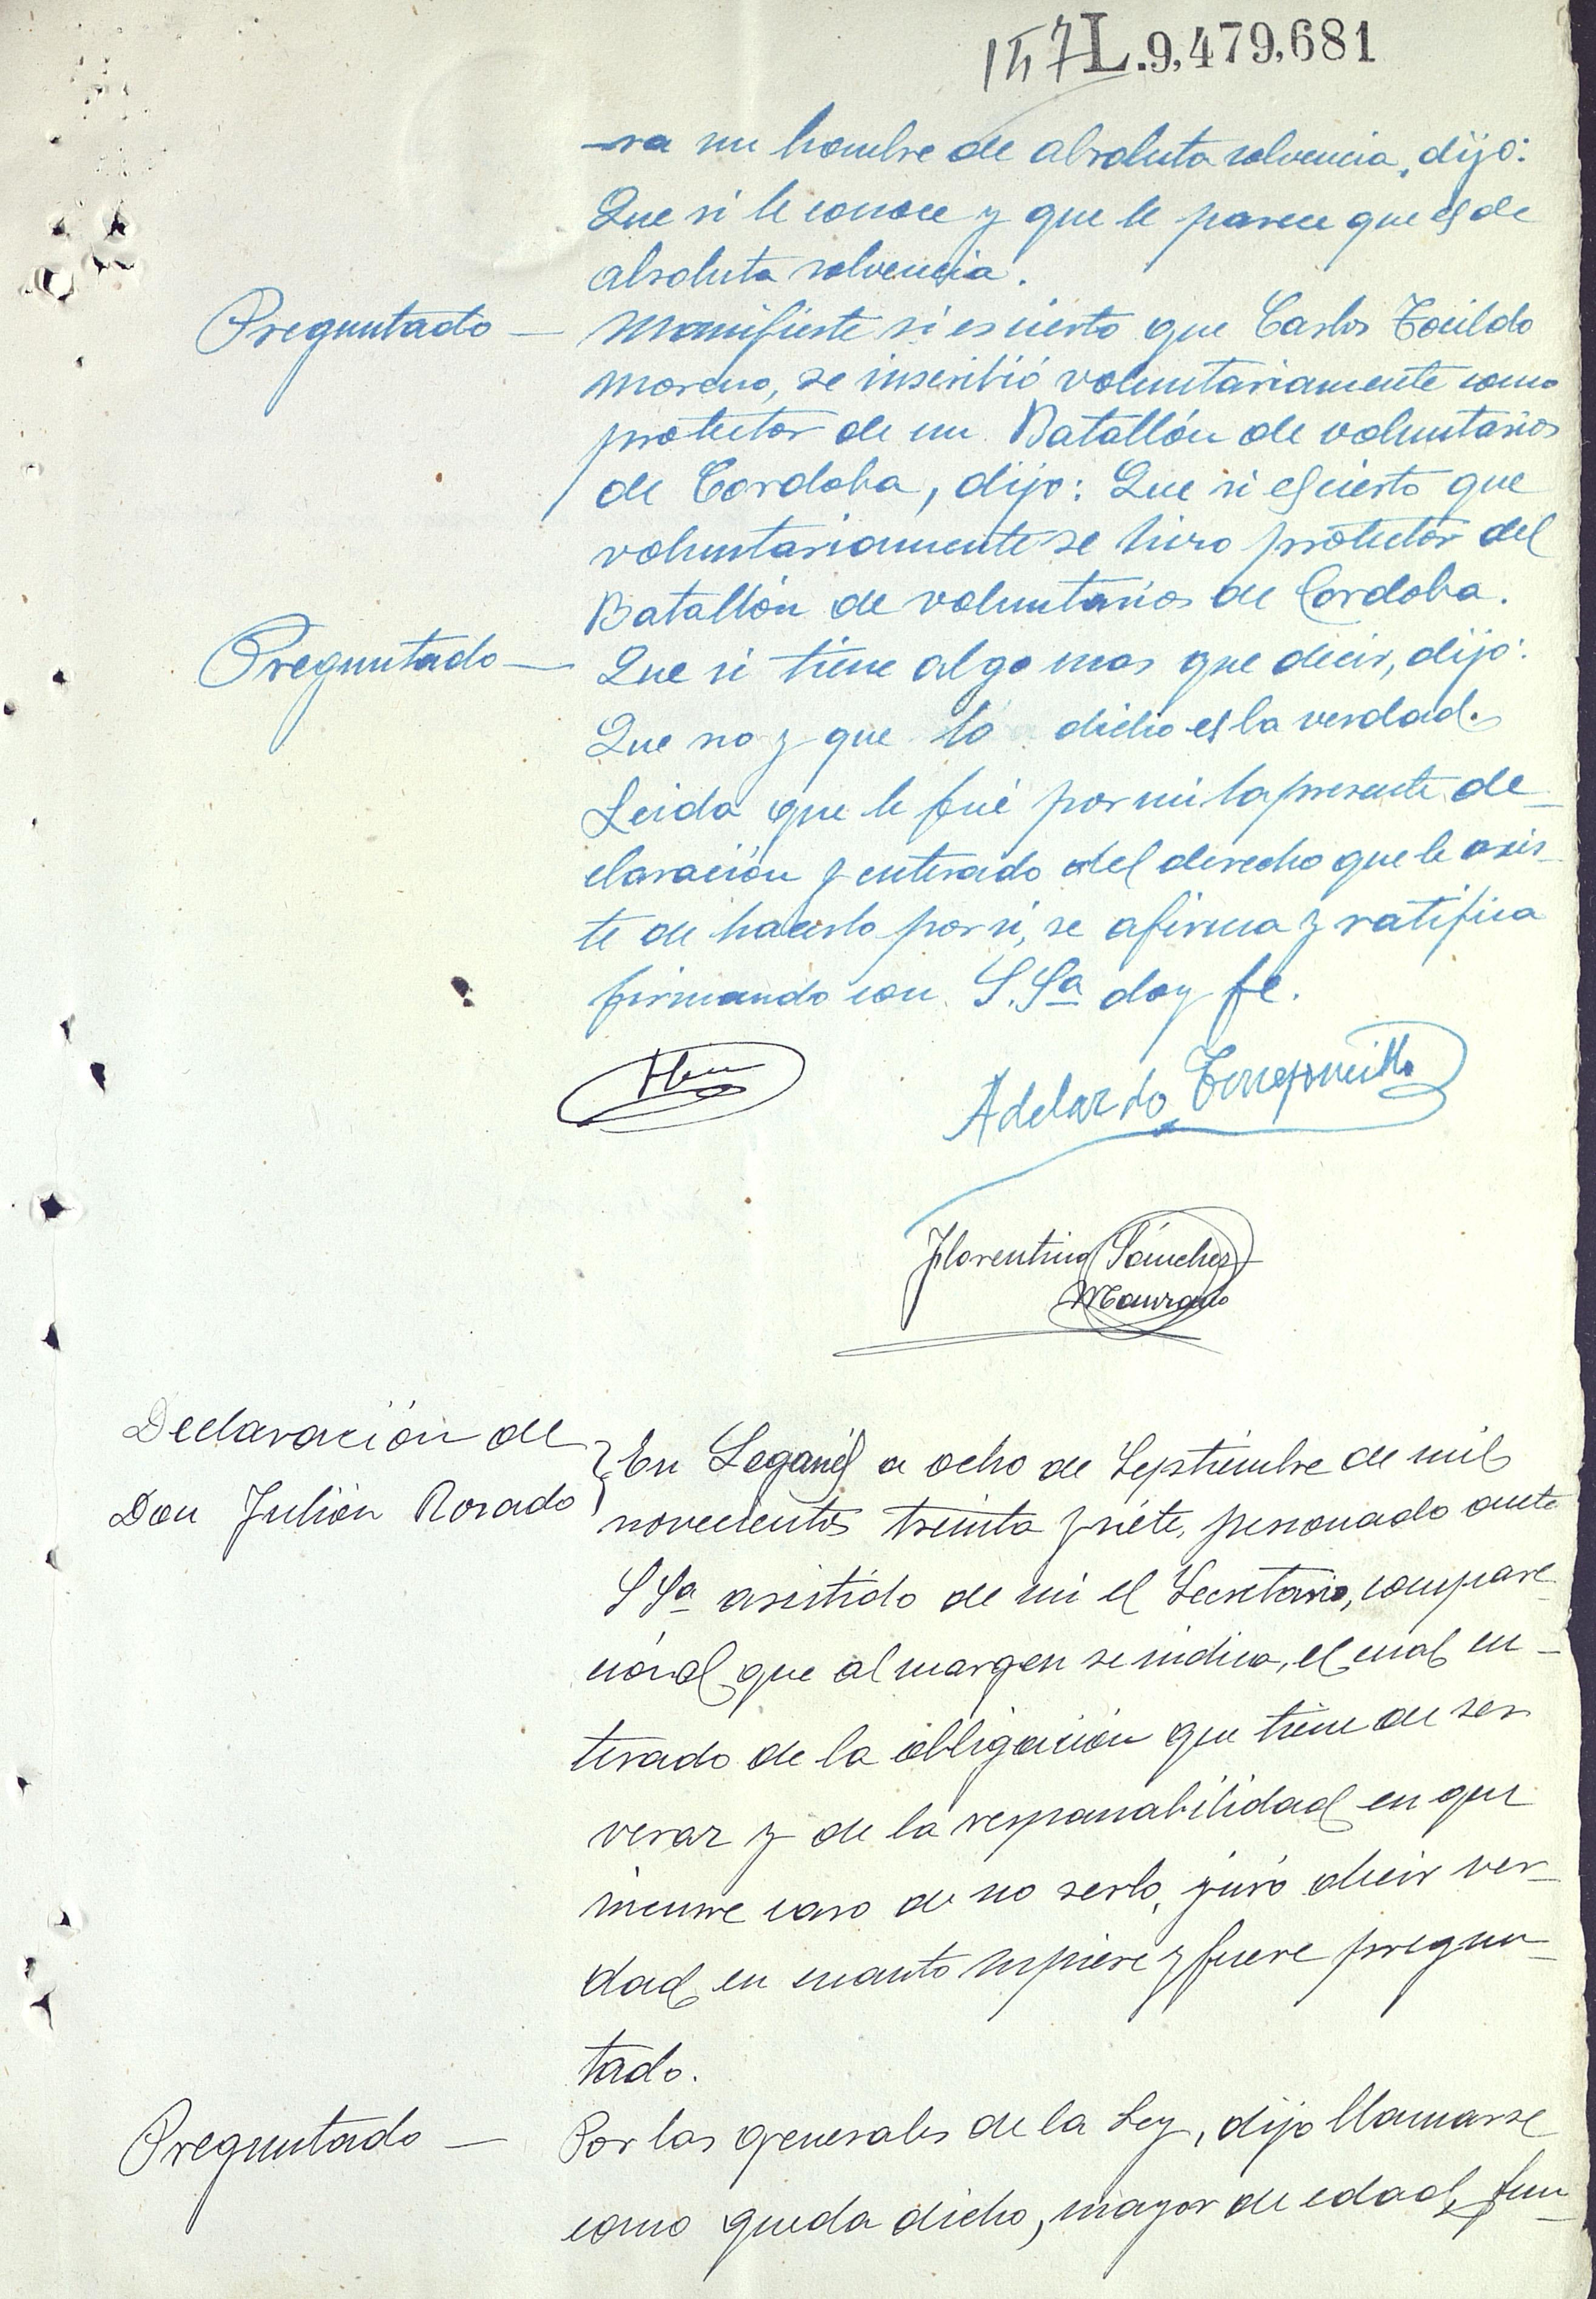 147 L.9,479,681
-ra un hombre de absoluta solvencia, dijo:
Que si le conoce y que le parece que es de
absoluta solvencia.
Preguntado — Manifieste si es cierto que Carlos
Moreno, se inscribió voluntariamente como
protector de un Batallón de voluntarios
de Cordoba, dijo: Que si es cierto que
voluntariamente se hizo protector del
Batallón de voluntarios de Cordoba.
Preguntado — Que si tiene algo mas que decir, dijo:
Que no y que lo dicho es la verdad.
Leida que le fué por mi la presente de-
claración y enterado del derecho que le asis-
te de hacerlo por si, se afirma y ratifica
firmando con S.Sª doy fe.
Adelardo
Florentino Sánchez
Declaración de
Don Julián Rosado
En Leganés a ocho de Septiembre de mil
novecientos treinta y siete, personado ante
S Sª asistido de mi el Secretario, compare-
ció el que al margen se indica, el cual en-
terado de la obligación que tiene de ser
veraz y de la responsabilidad en que
incurre caso de no serlo, juró decir ver-
dad en cuanto supiere y fuere pregun-
tado.
Preguntado — Por las generales de la Ley, dijo llamarse
como queda dicho, mayor de edad, fun-